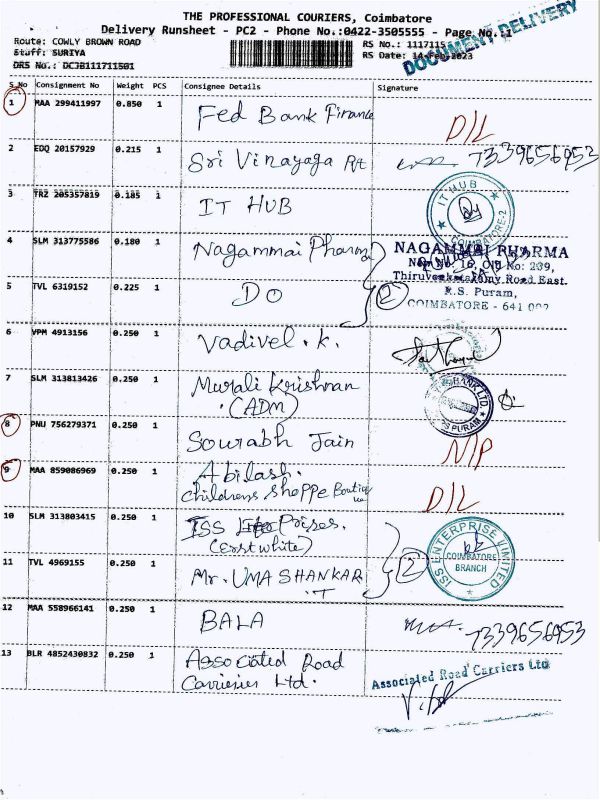 THE PROFESSIONAL COURIERS, Coimbatore
Delivery Runsheet - PC2 - Phone No.:0422-3505555 - Page No.:1
DOCUMENT DELIVERY
Route: COWLY BROWN ROAD RS No.: 1117115
Stuff: SURIYA RS Date: 14-Feb-2023
DRS No.: DCJB111711501
S.No Consignment No Weight PCS Consignee Details Signature
1 MAA 299411997 0.850 1 Fed Bank Finance D/L
2 EDQ 20157929 0.215 1 Sri Vinayaga Pvt 7339656953
3 TRZ 205357819 0.185 1 IT HUB IT HUB COIMBATORE-2
4 SLM 313775586 0.180 1 Nagammai Pharma NAGAMMAI PHARMA
New No: 16, Old No: 209,
Thiruvenkatasamy Road East.
5 TVL 6319152 0.225 1 DO 2 R.S. Puram,
COIMBATORE - 641 002
6 VPM 4913156 0.250 1 Vadivel . K.
7 SLM 313813426 0.250 1 Murali Krishnan BANK LTD
(ADM) PURAM
8 PNU 756279371 0.250 1 Sourabh Jain N/P
9 MAA 859086969 0.250 1 Abilash.
Childrens Shoppe Boutique D/L
10 SLM 313803415 0.250 1 ISS Poises.
(Erstwhite) ISS ENTERPRISE LIMITED
COIMBATORE
BRANCH
11 TVL 4969155 0.250 1 Mr. UMA SHANKAR 2
T
12 MAA 558966141 0.250 1 BALA 7339656953
13 BLR 4852430832 0.250 1 Associated Road
Carrieries Ltd. Associated Road Carriers Ltd